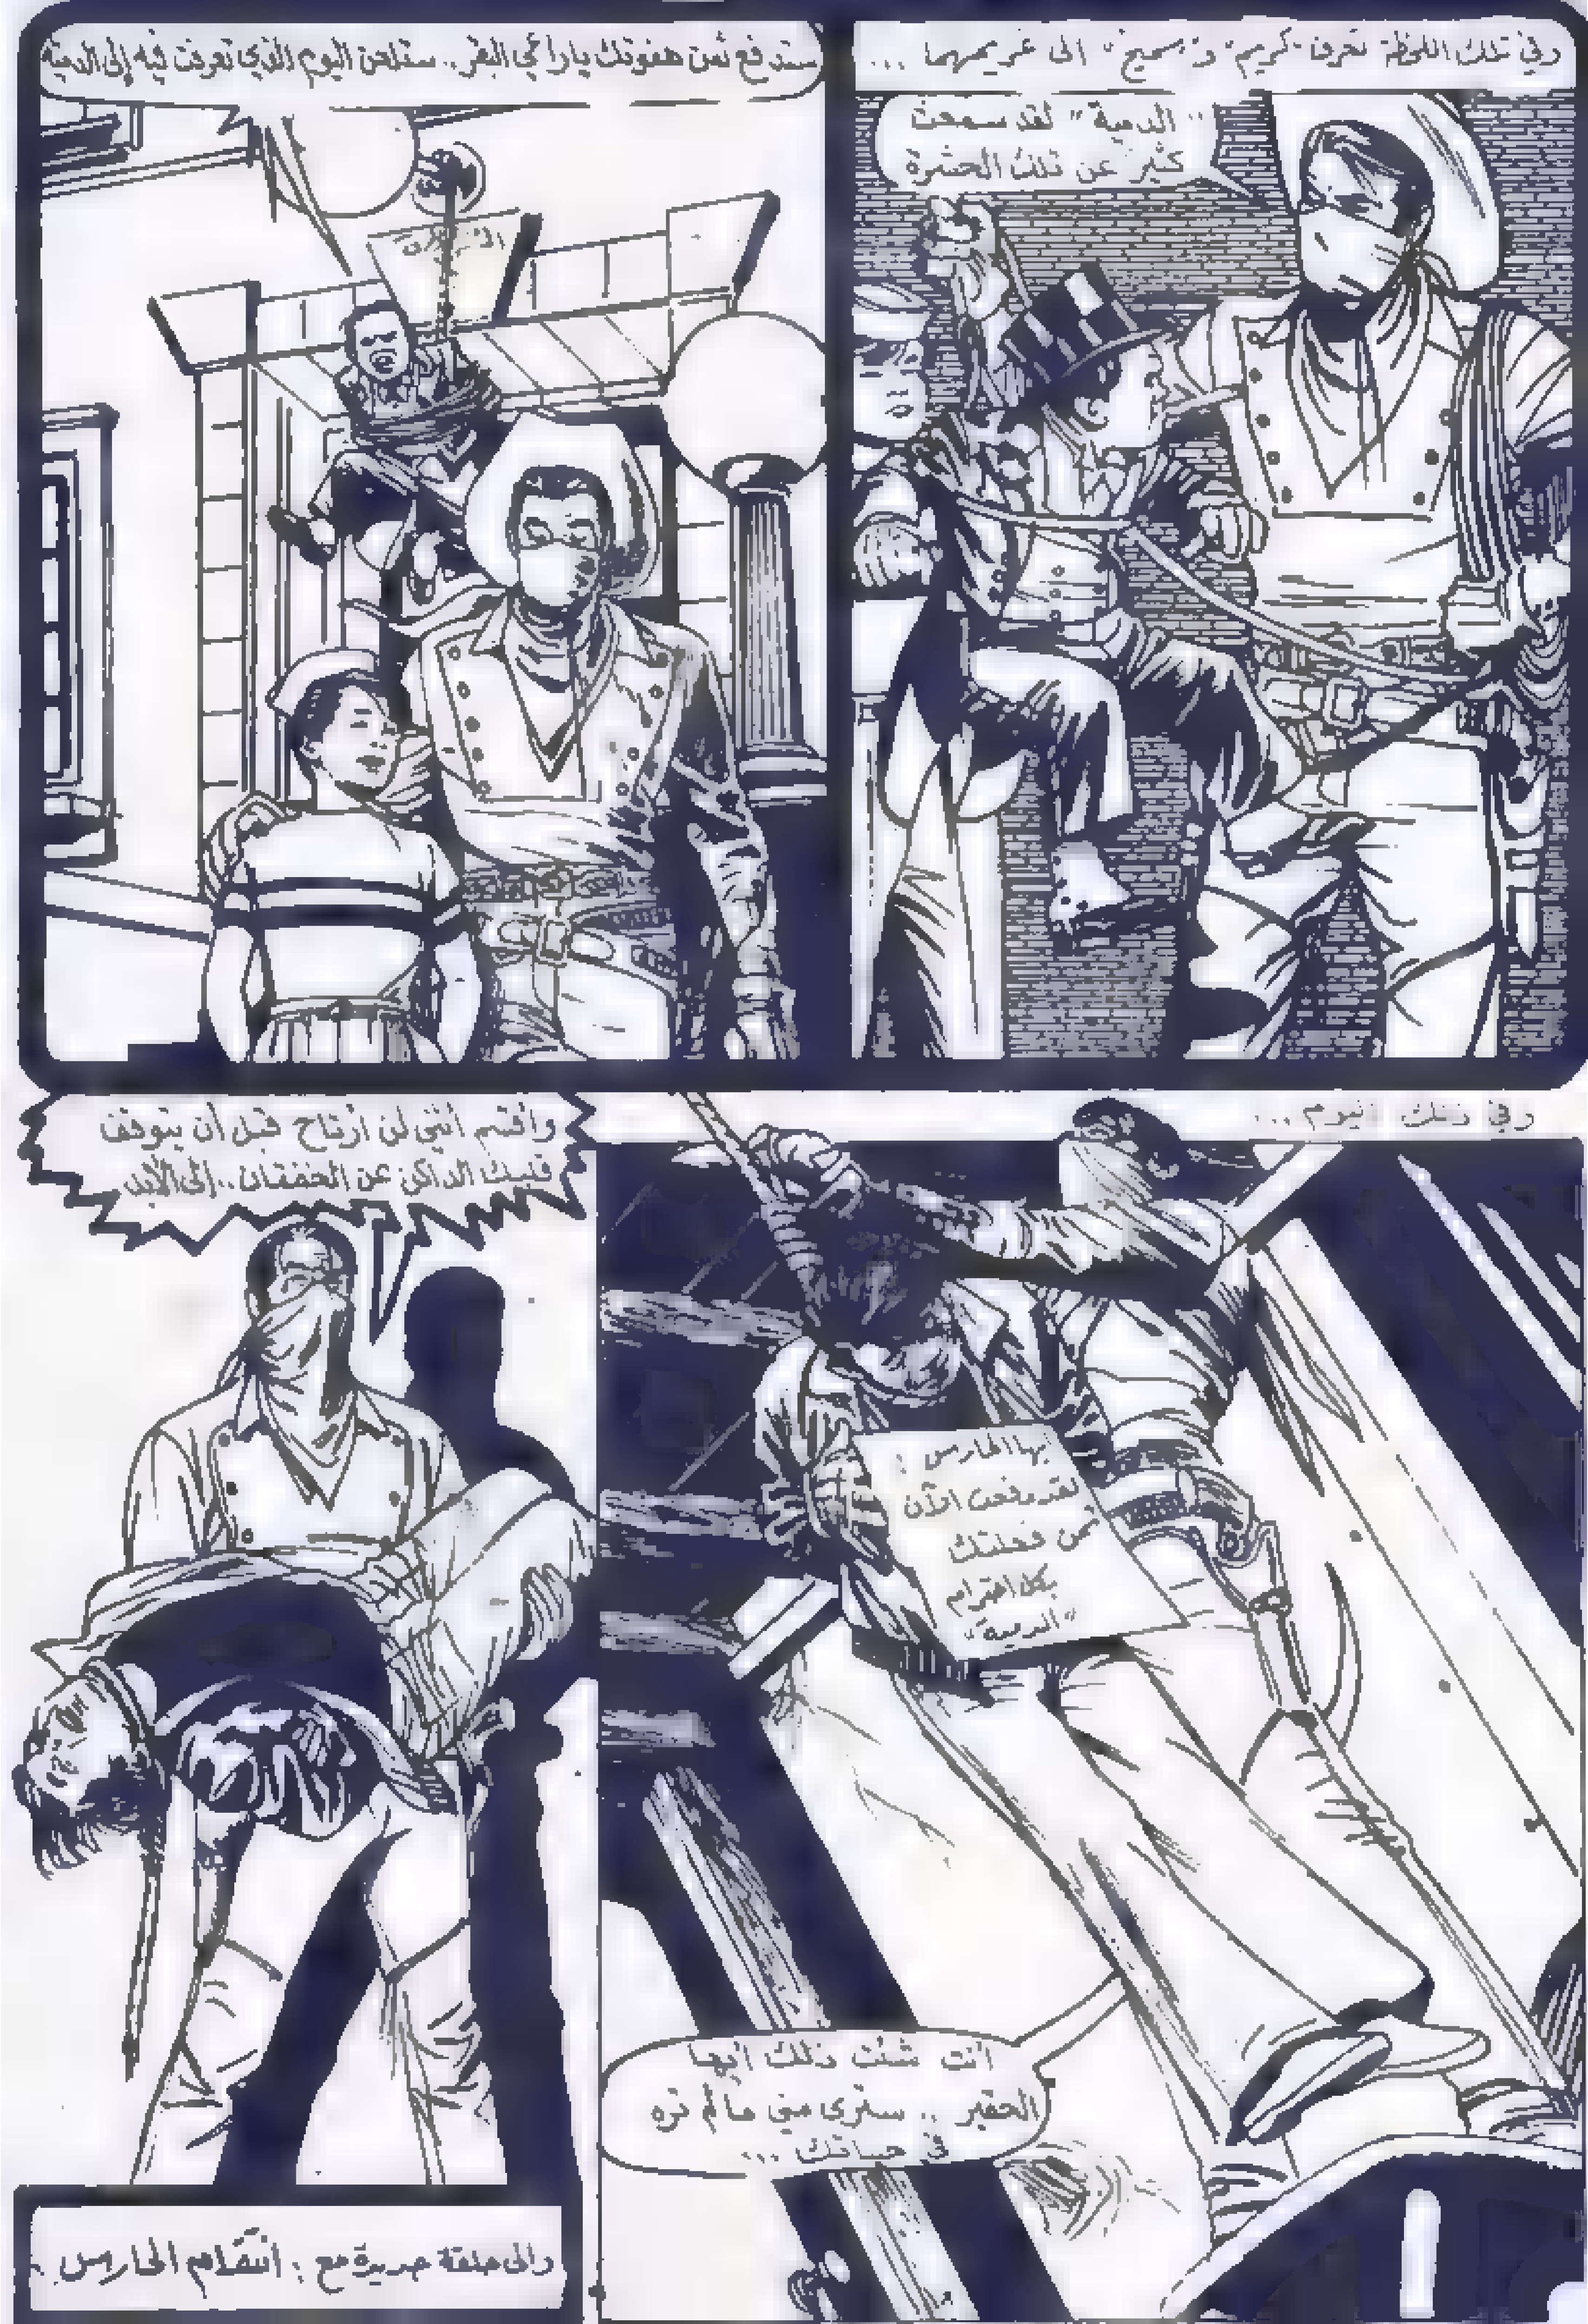 وفي تلك اللحظة تعرف "كريم" و"سميح" الى غريمهما ...
"الدمية" لقد سمعت
كثير عن تلك الحشرة
ستدفع ثمن هفوتك يا راعي البقر.. ستلعن اليوم الذي تعرفت فيه إلى الدمية
وفي ذلك اليوم ...
أيها الحارس :
لقد دفعت الآن
ثمن فعلتك
بكل احترام
"الدمية"
أنت شئت ذلك أيها
الحقير .. سترى مني ما لم تره
في حياتك ...
وأقسم أنني لن أرتاح قبل أن يتوقف
قلبك الداكن عن الخفقان .. إلى الأبد
والى حلقة جديدة مع : انتقام الحارس